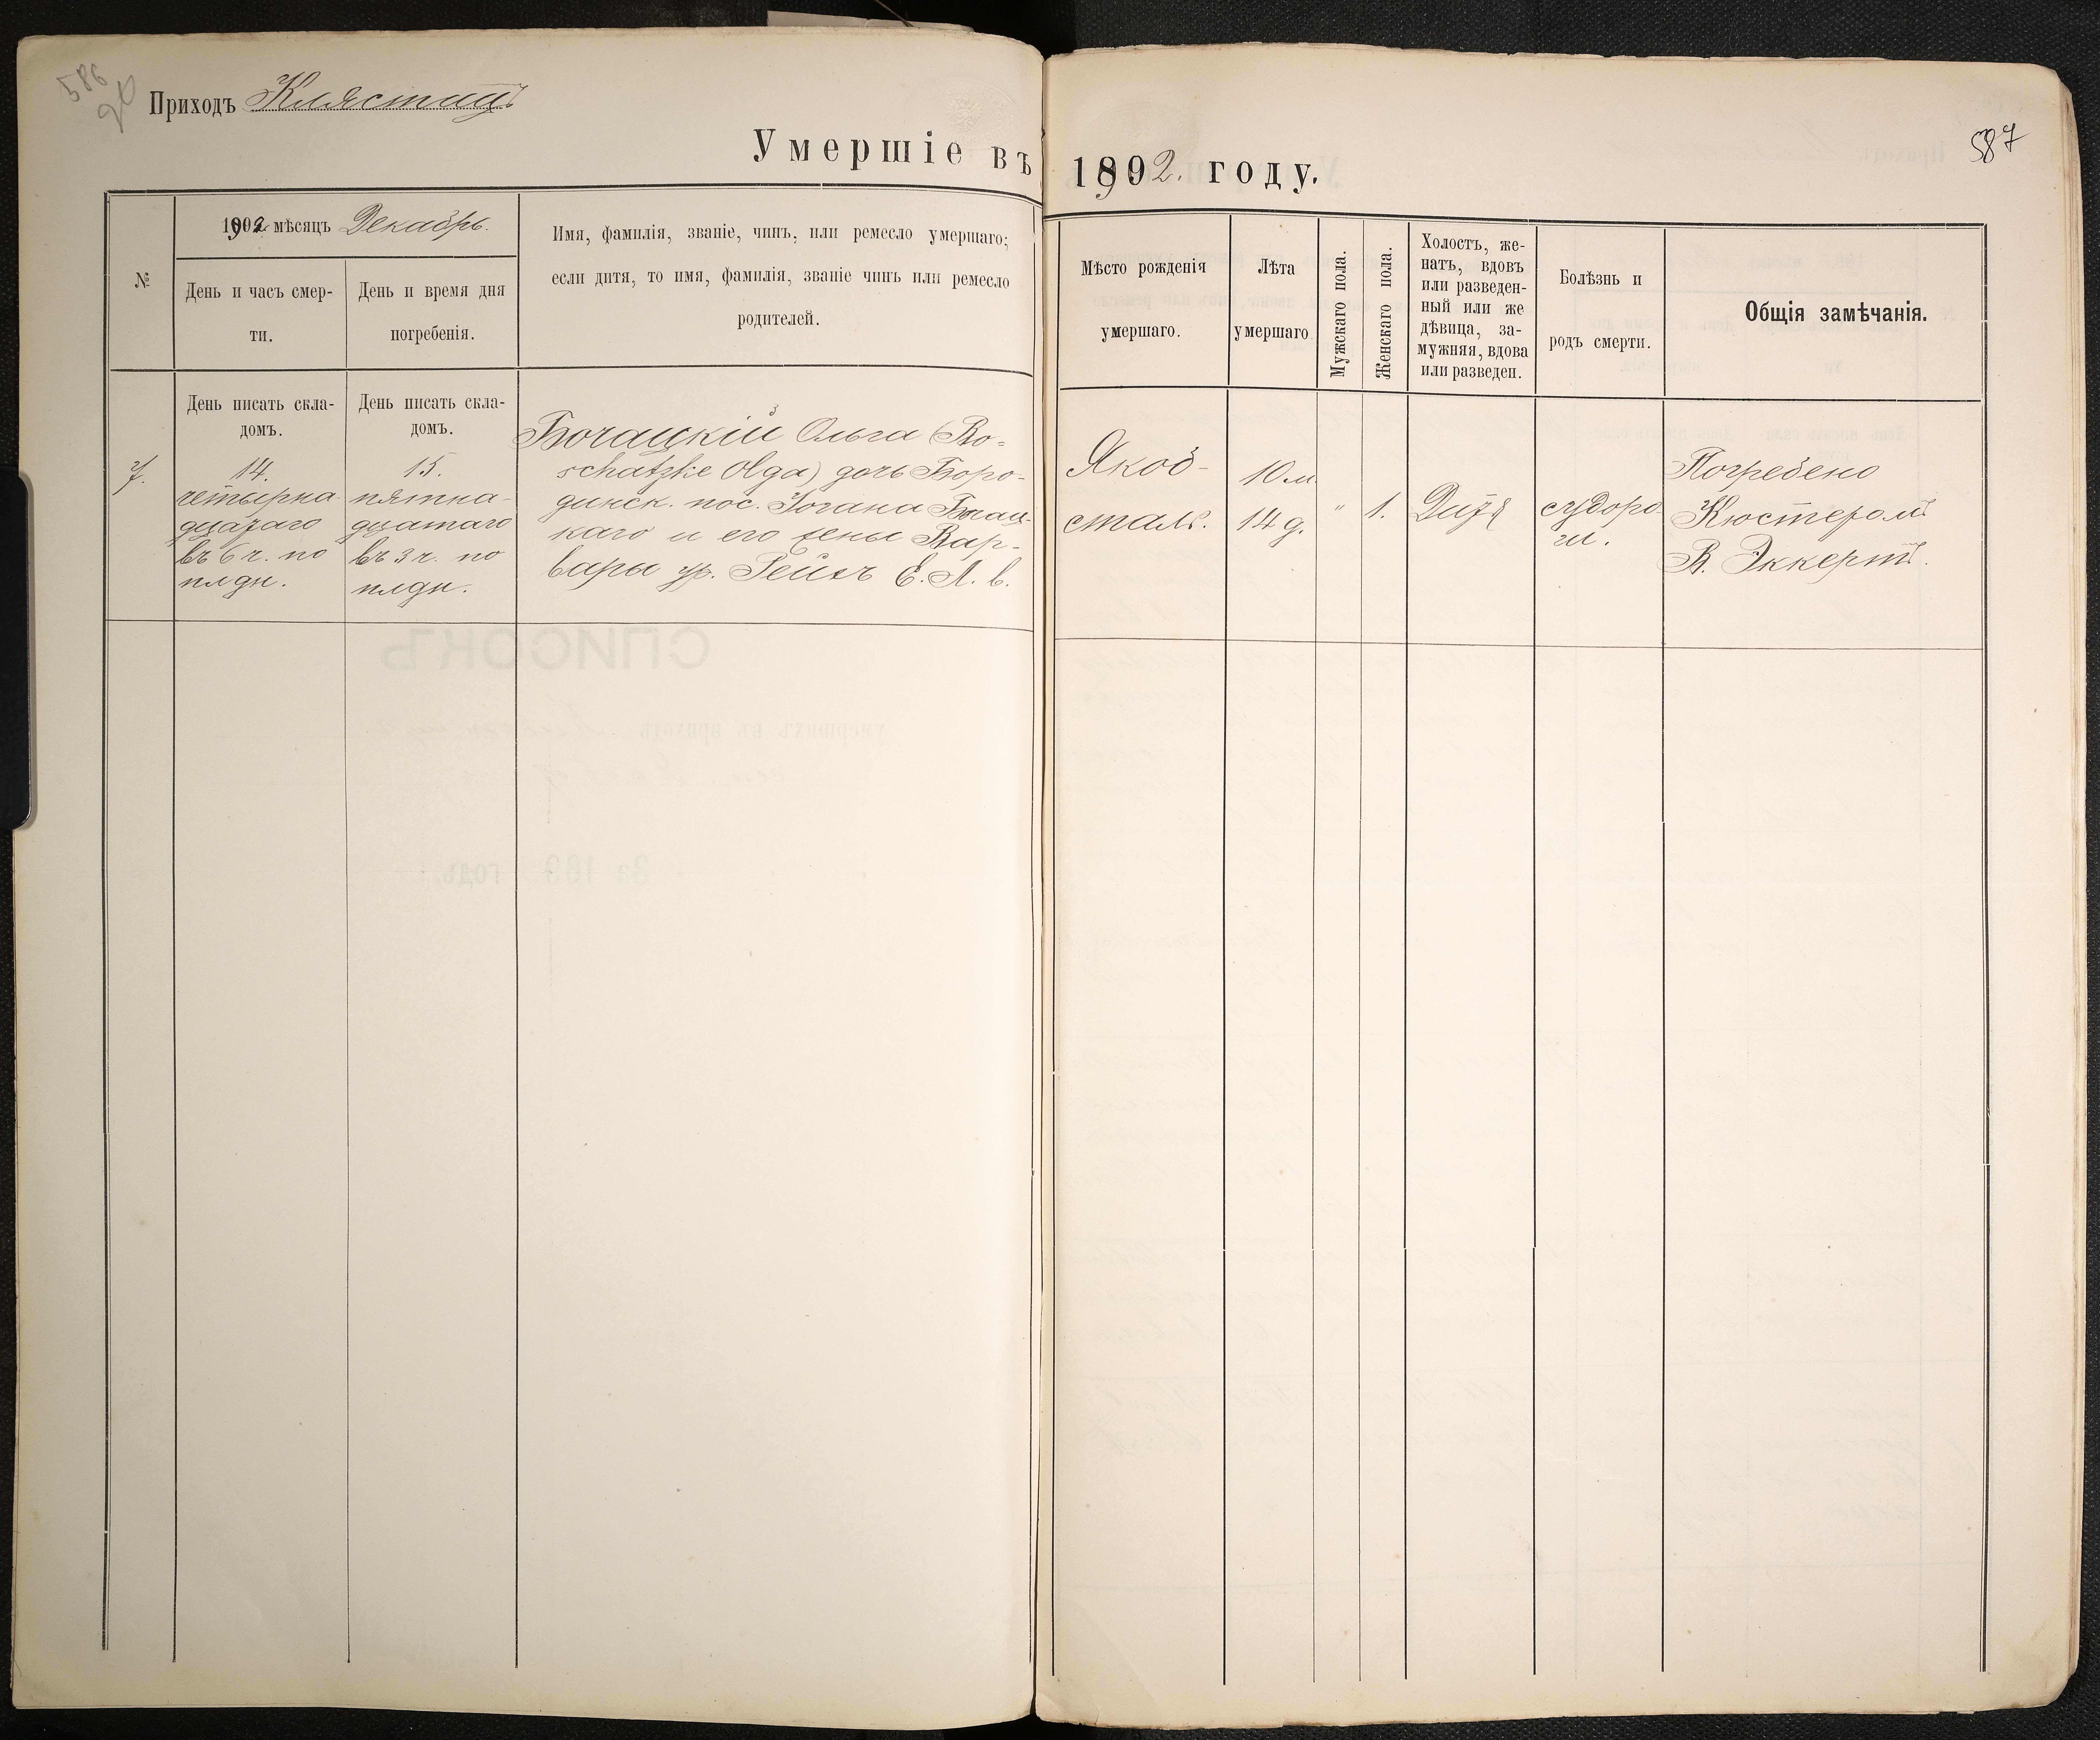 586
20
Приходъ Клястицъ
Умершіе въ 1902. году.
587
№
1902 мѣсяцъ Декабрь.
День и часъ смер-
ти.
День и время дня
погребенія.
Имя, фамилія, званіе, чинъ, или ремесло умершаго;
если дитя, то имя, фамилія, званіе чинъ или ремесло
родителей.
Мѣсто рожденія
умершаго.
Лѣта
умершаго
Мужскаго пола.
Женскаго пола.
Холостъ, же-
натъ, вдовъ
или разведен-
ный или же
дѣвица, за-
мужняя, вдова
или разведен.
Болѣзнь и
родъ смерти.
Общія замѣчанія.
День писать скла-
домъ.
День писать скла-
домъ.
7.
14.
четырна
дцатаго
въ 6 ч. по
плдн.
15.
пятна-
дцатаго
въ 3 ч. по
плдн.
Бочацкій Ольга (Bo-
schatzke Olga) дочь Боро-
динск. пос. Іогана Бочац-
каго и его жены Вар-
вары ур. Рейхъ Е. Л. в.
Якоб-
сталь.
10 м.
14 д.
"
1.
Дитя
судоро
ги.
Погребено
Кюстеромъ
В. Эккертъ.
СПИСОКЪ
умершихъ въ приходѣ
За 190 годъ.